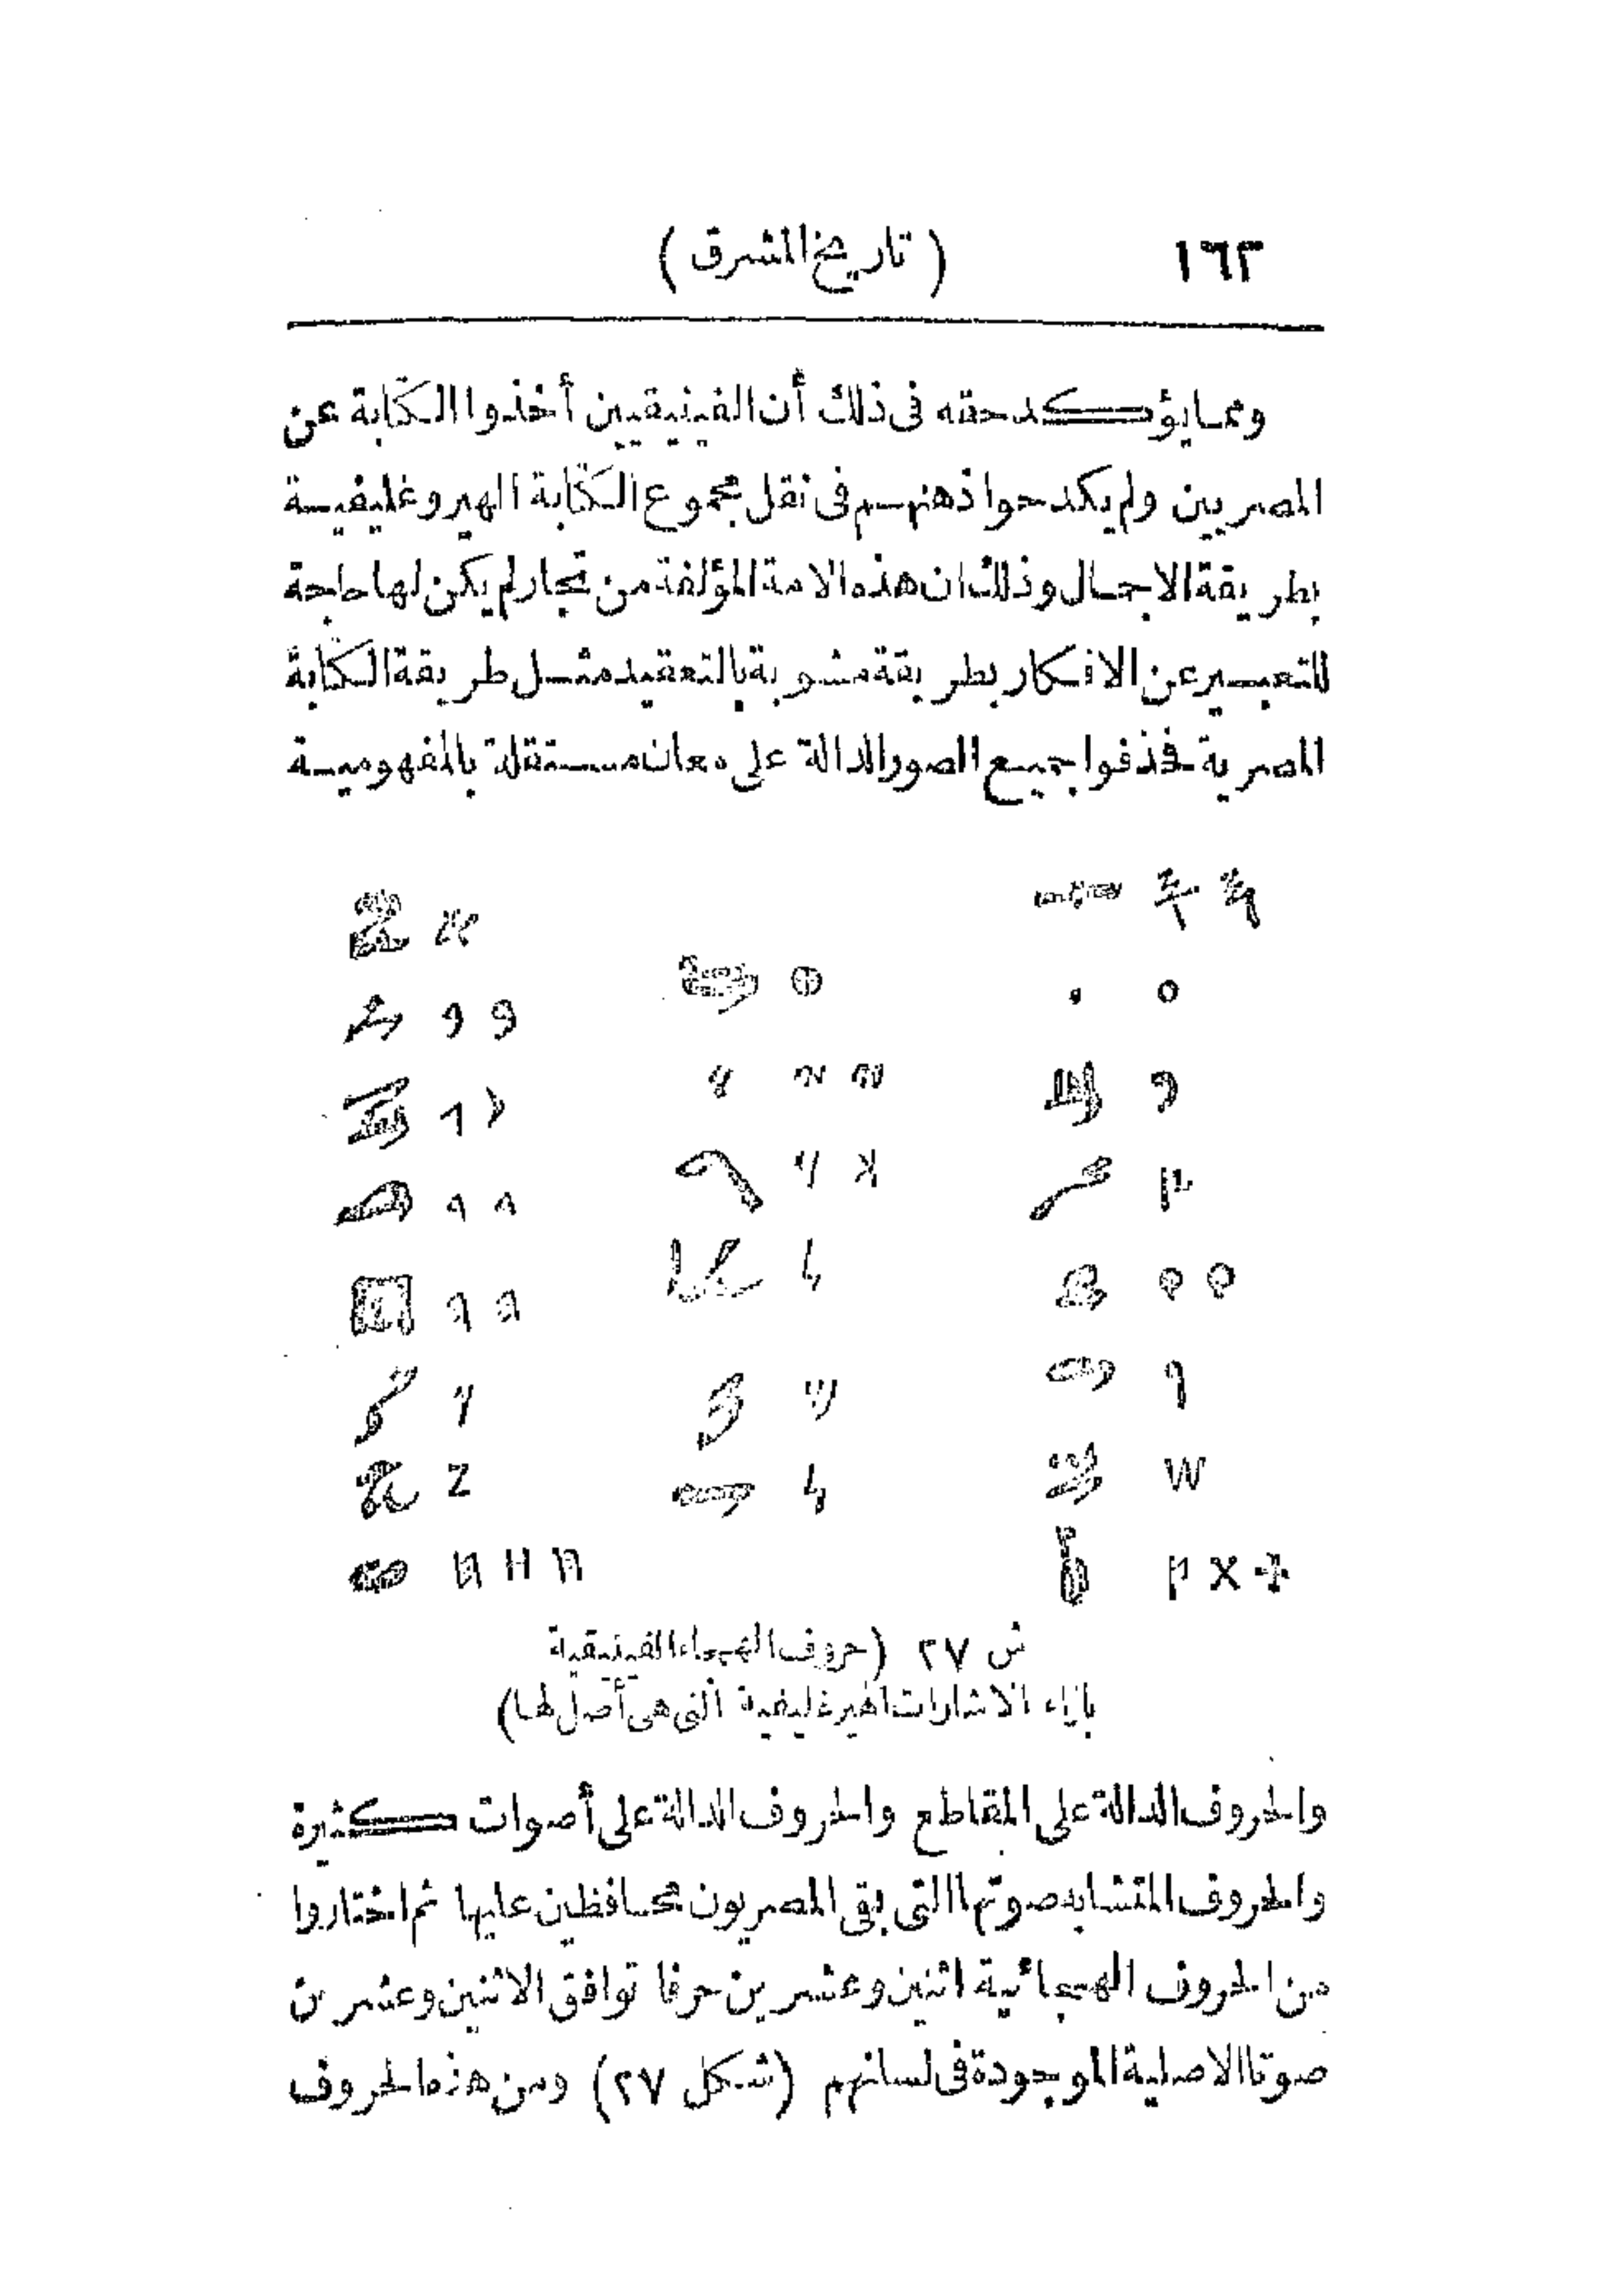 ١٦٢ (تاريخ المشرق)
ومما يؤكد حقه فى ذلك أن الفينيقيين أخذوا الكتابة عن
المصريين ولم يكدحوا ذهنهم فى نقل مجموع الكتابة الهيروغليفية
بطريقة الاجمال وذلك ان هذه الامة المؤلفة من تجار لم يكن لها حاجة
للتعبير عن الافكار بطريقة مشوبة بالتعقيد مثل طريقة الكتابة
المصرية فحذفوا جميع الصور الدالة على معان مستقلة بالمفهومية
ش ٢٧ (حروف الهجاء الفينيقية
بازاء الاشارات الهيرغليفية التى هى أصل لها)
والحروف الدالة على المقاطع والحروف الدالة على أصوات كثيرة
والحروف المتشابه صوتها التى بقى المصريون محافظين عليها ثم اختاروا
من الحروف الهجائية اثنين وعشرين حرفا توافق الاثنين وعشرين
صوتا الاصلية الموجودة فى لسانهم (شكل ٢٧) ومن هذه الحروف